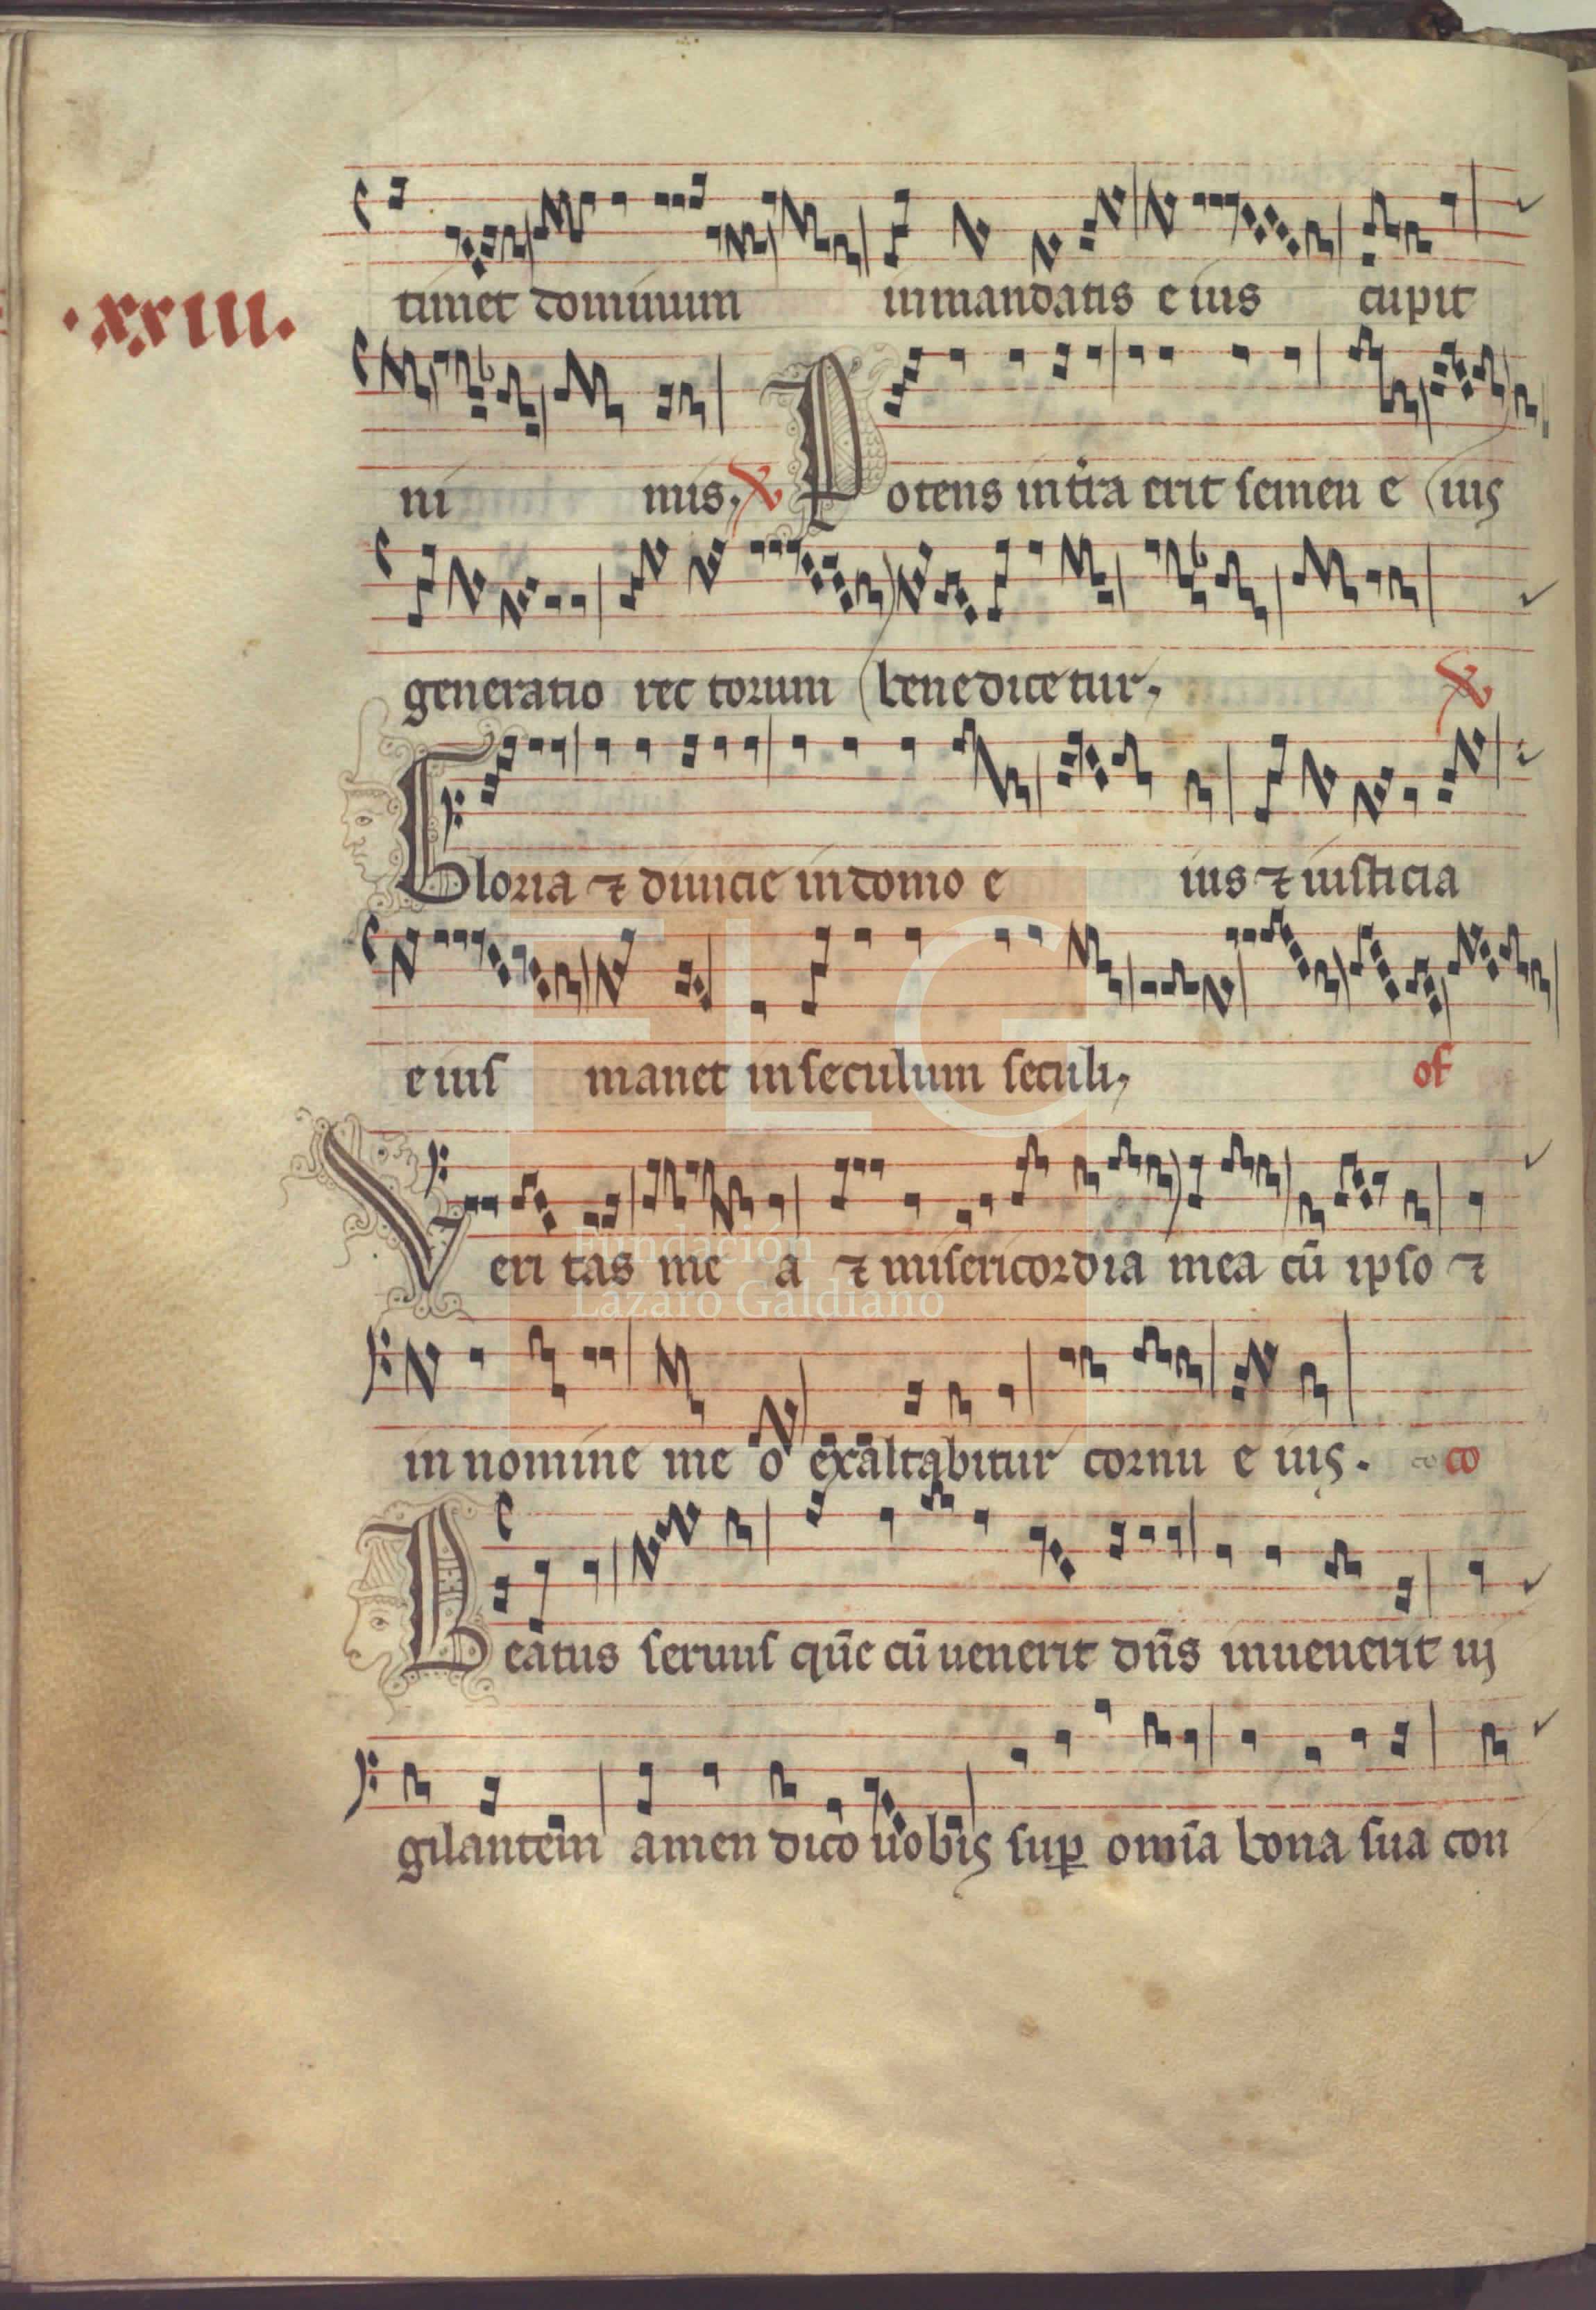 .xxiii.
timet dominum inmandatis e ius cupit
ni mus, ℣ Potens intr̄a erit semen e ius
generatio rec torum benedicetur, ℣
Gloria ⁊ diuicie indomo e ius ⁊ iusticia
e ius manet inseculum seculi, of
Veri tas me a ⁊ misericordia mea cū ipso ⁊
in nomine me o exaltabitur cornu e ius. co co
Beatus seruus que cū uenerit dn̄s inuenerit ui
gilantem amen dico uobis sup omīa bona sua con
FLG
Fundación
Lázaro Galdiano